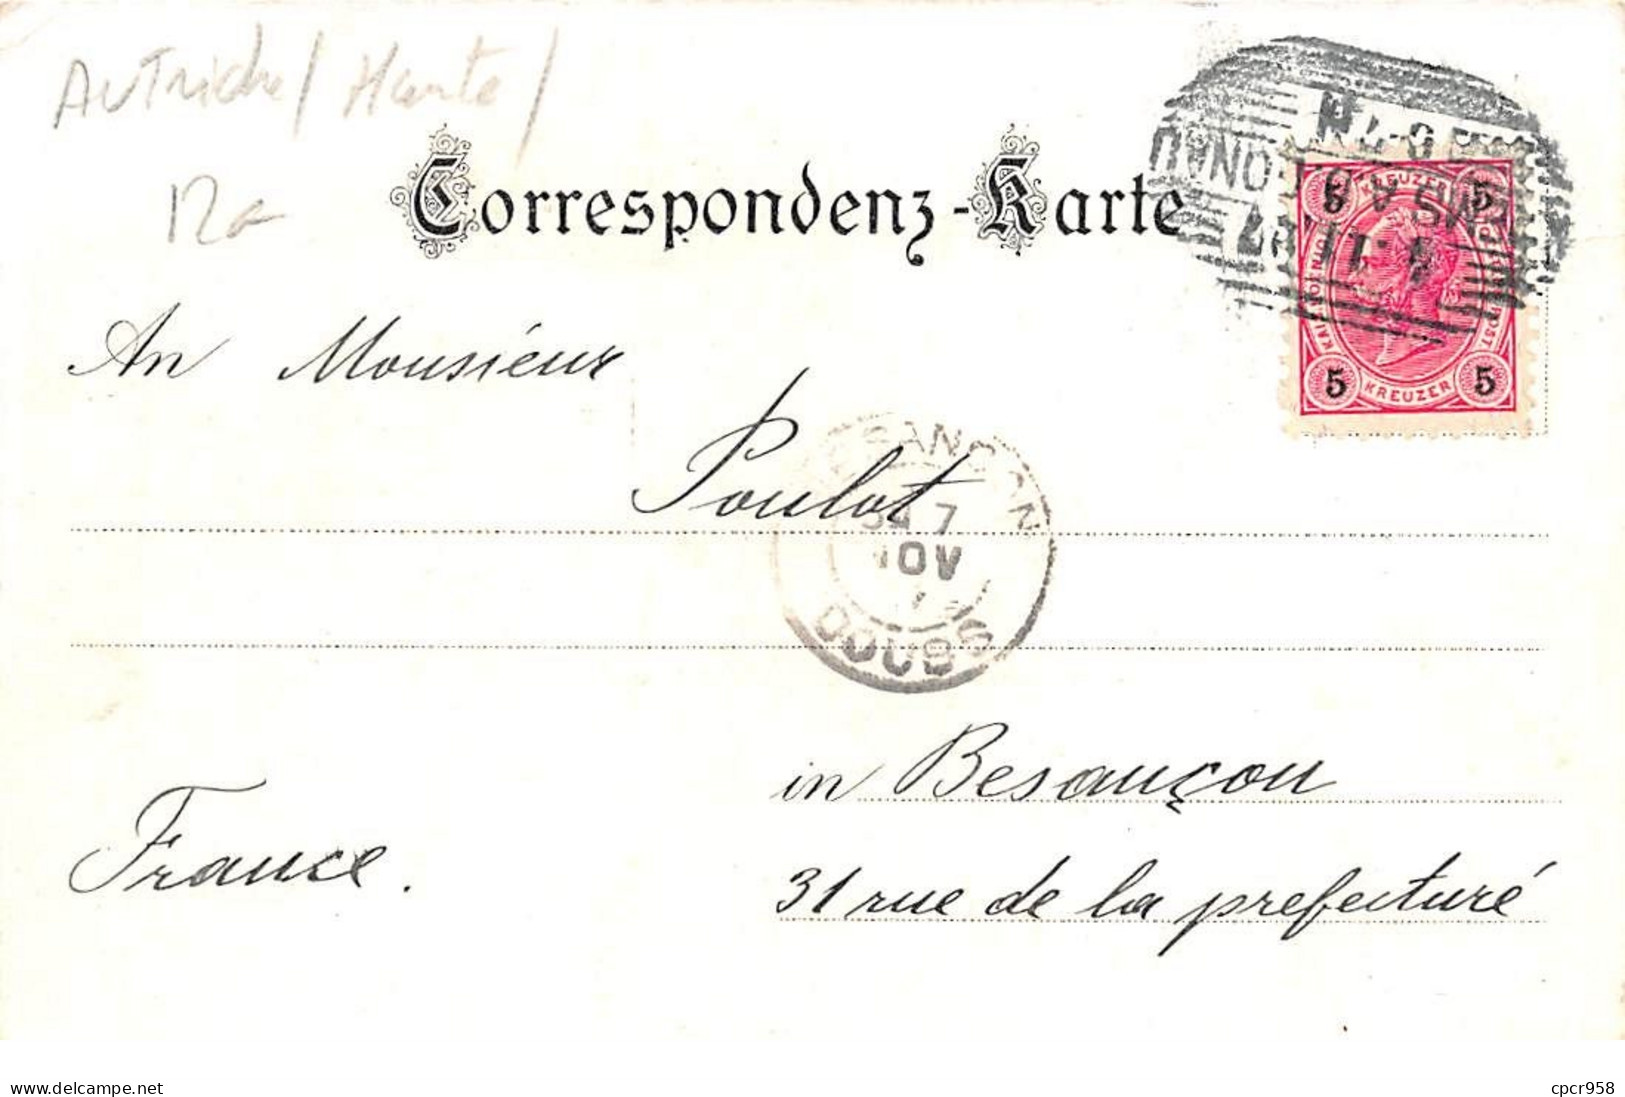 Autriche / Haute /
12e
Correspondenz-Karte
KREUZER
5 5
5 KREUZER 5
EMS A. D. DONAU
4.11.97
6-7
An Monsieur
Poulot
BESANCON
7
NOV
DOUBS
in Besançon
France.
31 rue de la prefecturé
delcampe.net
cpcr958